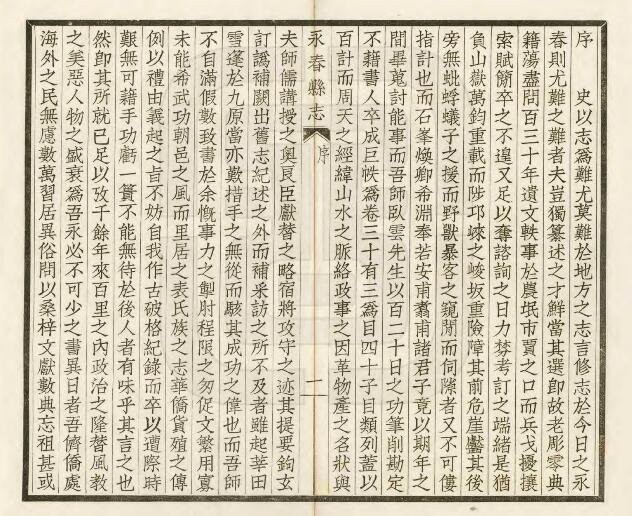 序
史以志爲難尤莫難於地方之志言修志於今日之永
春則尤難之難者夫豈獨纂述之才鮮當其選卽故老彫零典
籍蕩盡問百三十年遺文軼事於農氓市賈之口而兵戈擾攘
索賦箾卒之不遑又足以奪諮詢之日力棼考訂之端緒是猶
負山嶽萬鈞重載而陟邛崍之峻坂重險障其前危崖齾其後
旁無蚍蜉蟻子之援而野獸暴客之窺閒而伺隙者又不可僂
指計也而石峯煥卿希淵奉若安甫翥甫諸君子竟以期年之
間畢蒐討能事而吾師臥雲先生以百二十日之功筆削勘定
不藉書人卒成巨帙爲卷三十有三爲目四十子目類列蓋以
百計而周天之經緯山水之脈絡政事之因革物產之名狀與
永春縣志
序
一
夫師儒講授之奧良臣獻替之略宿將攻守之迹其提要鉤玄
訂譌補闕出舊志紀述之外而補采訪之所不及者雖起莘田
雪逢於九原當亦歎措手之無從而駭其成功之偉也而吾師
不自滿假數致書於余慨事力之掣肘程限之匆促文繁用寡
未能希武功朝邑之風而里居之表氏族之志華僑貨殖之傳
例以禮由義起之旨不妨自我作古破格紀錄而卒以遭際時
艱無可藉手功虧一簣不能無待於後人者有味乎其言之也
然卽其所就已足以攷千餘年來百里之內政治之隆替風教
之美惡人物之盛衰爲吾永必不可少之書異日者吾儕僑處
海外之民無慮數萬習居異俗問以桑梓文獻數典忘祖甚或